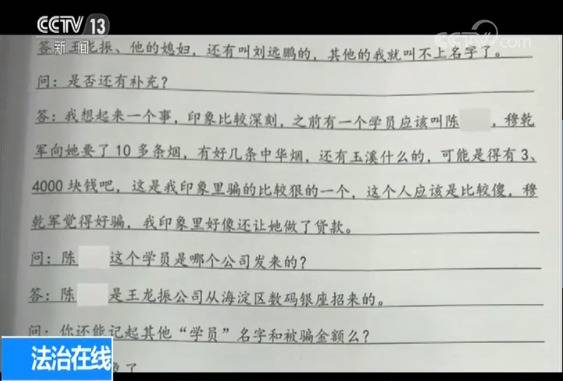 CCTV 13
新闻
CCTV.com
答：王龙振、他的媳妇，还有叫刘远鹏的，其他的我就叫不上名字了。
问：是否还有补充？
答：我想起来一个事，印象比较深刻，之前有一个学员应该叫陈，穆乾
军向她要了10多条烟，有好几条中华烟，还有玉溪什么的，可能是得有3、
4000块钱吧，这是我印象里骗的比较狠的一个，这个人应该是比较傻，穆
乾军觉得好骗，我印象里好像还让她做了贷款。
问：陈这个学员是哪个公司发来的？
答：陈是王龙振公司从海淀区数码银座招来的。
问：你还能记起其他“学员”名字和被骗金额么？
法治在线